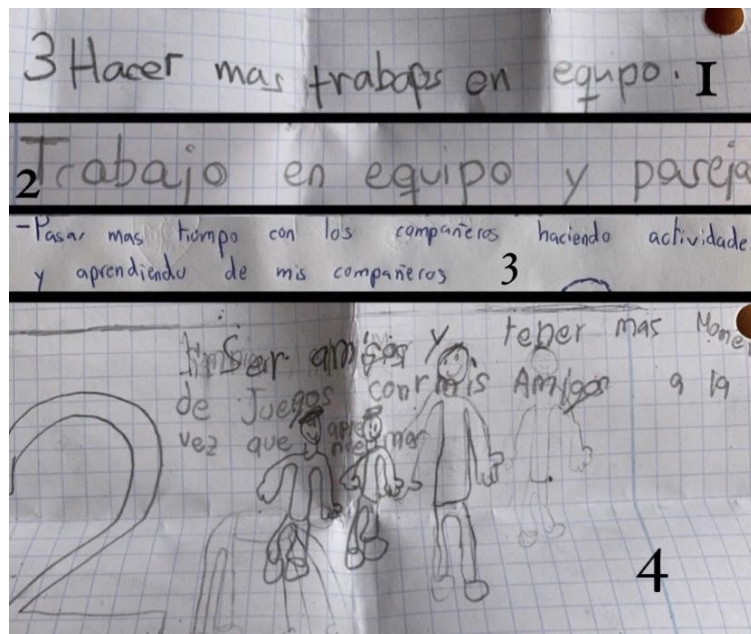 3 Hacer mas trabajos en equpo. 1
2 Trabajo en equipo y pareja
-Pasar mas tiempo con los compañeros haciendo actividade
y aprendiendo de mis compañeros 3
Ser amigos y tener mas Mome
de Juegos con mis Amigos a la
vez que aprendemos
2
4